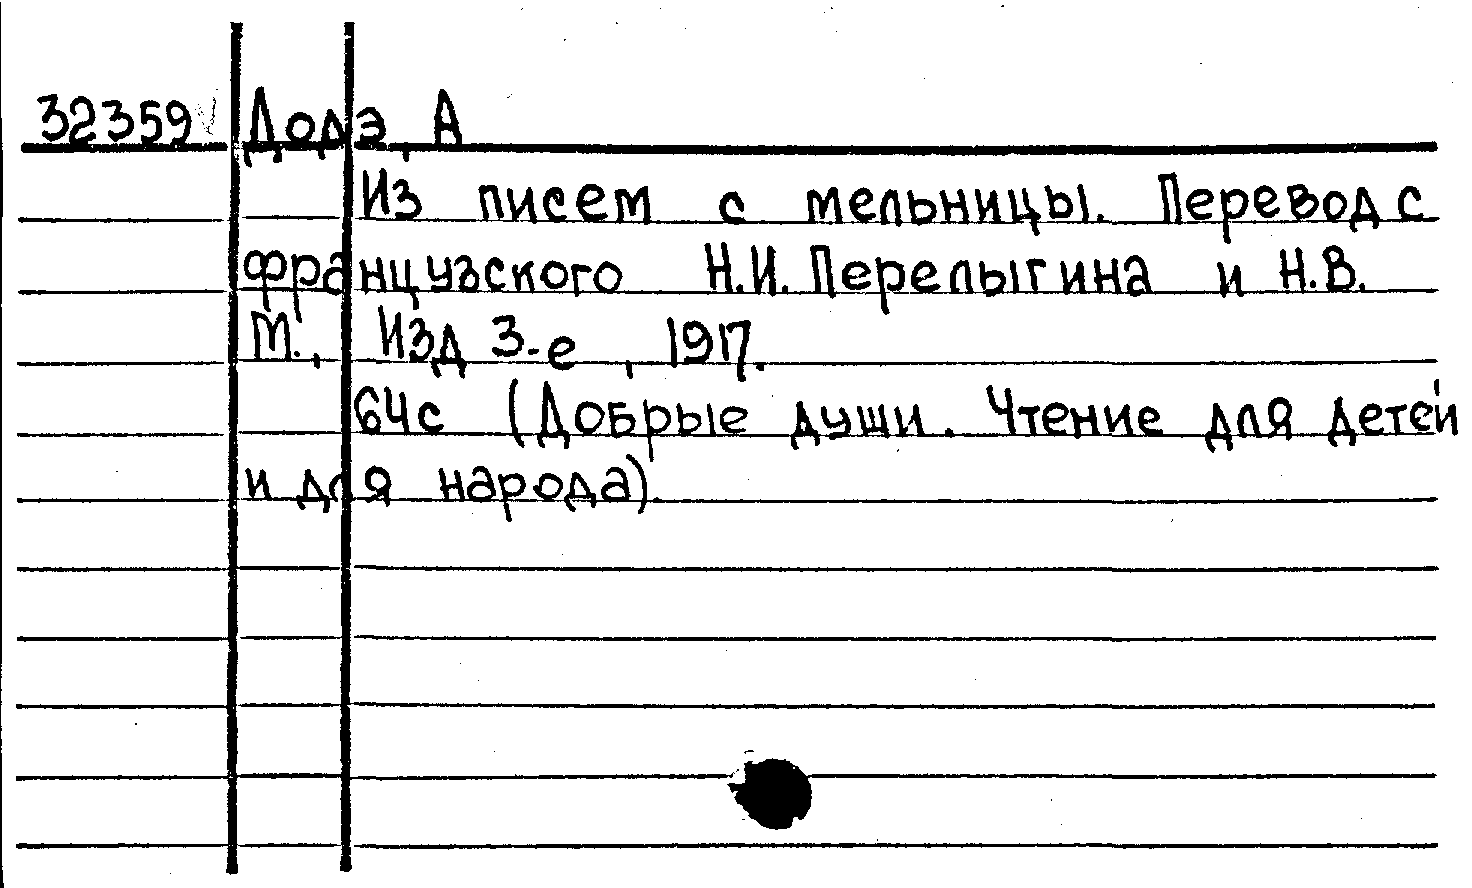 32359 Додэ, А
Из писем с мельницы. Перевод с
французского Н.И. Перелыгина и Н.В.
М., Изд 3-е, 1917.
64с (Добрые души. Чтение для детей
и для народа).